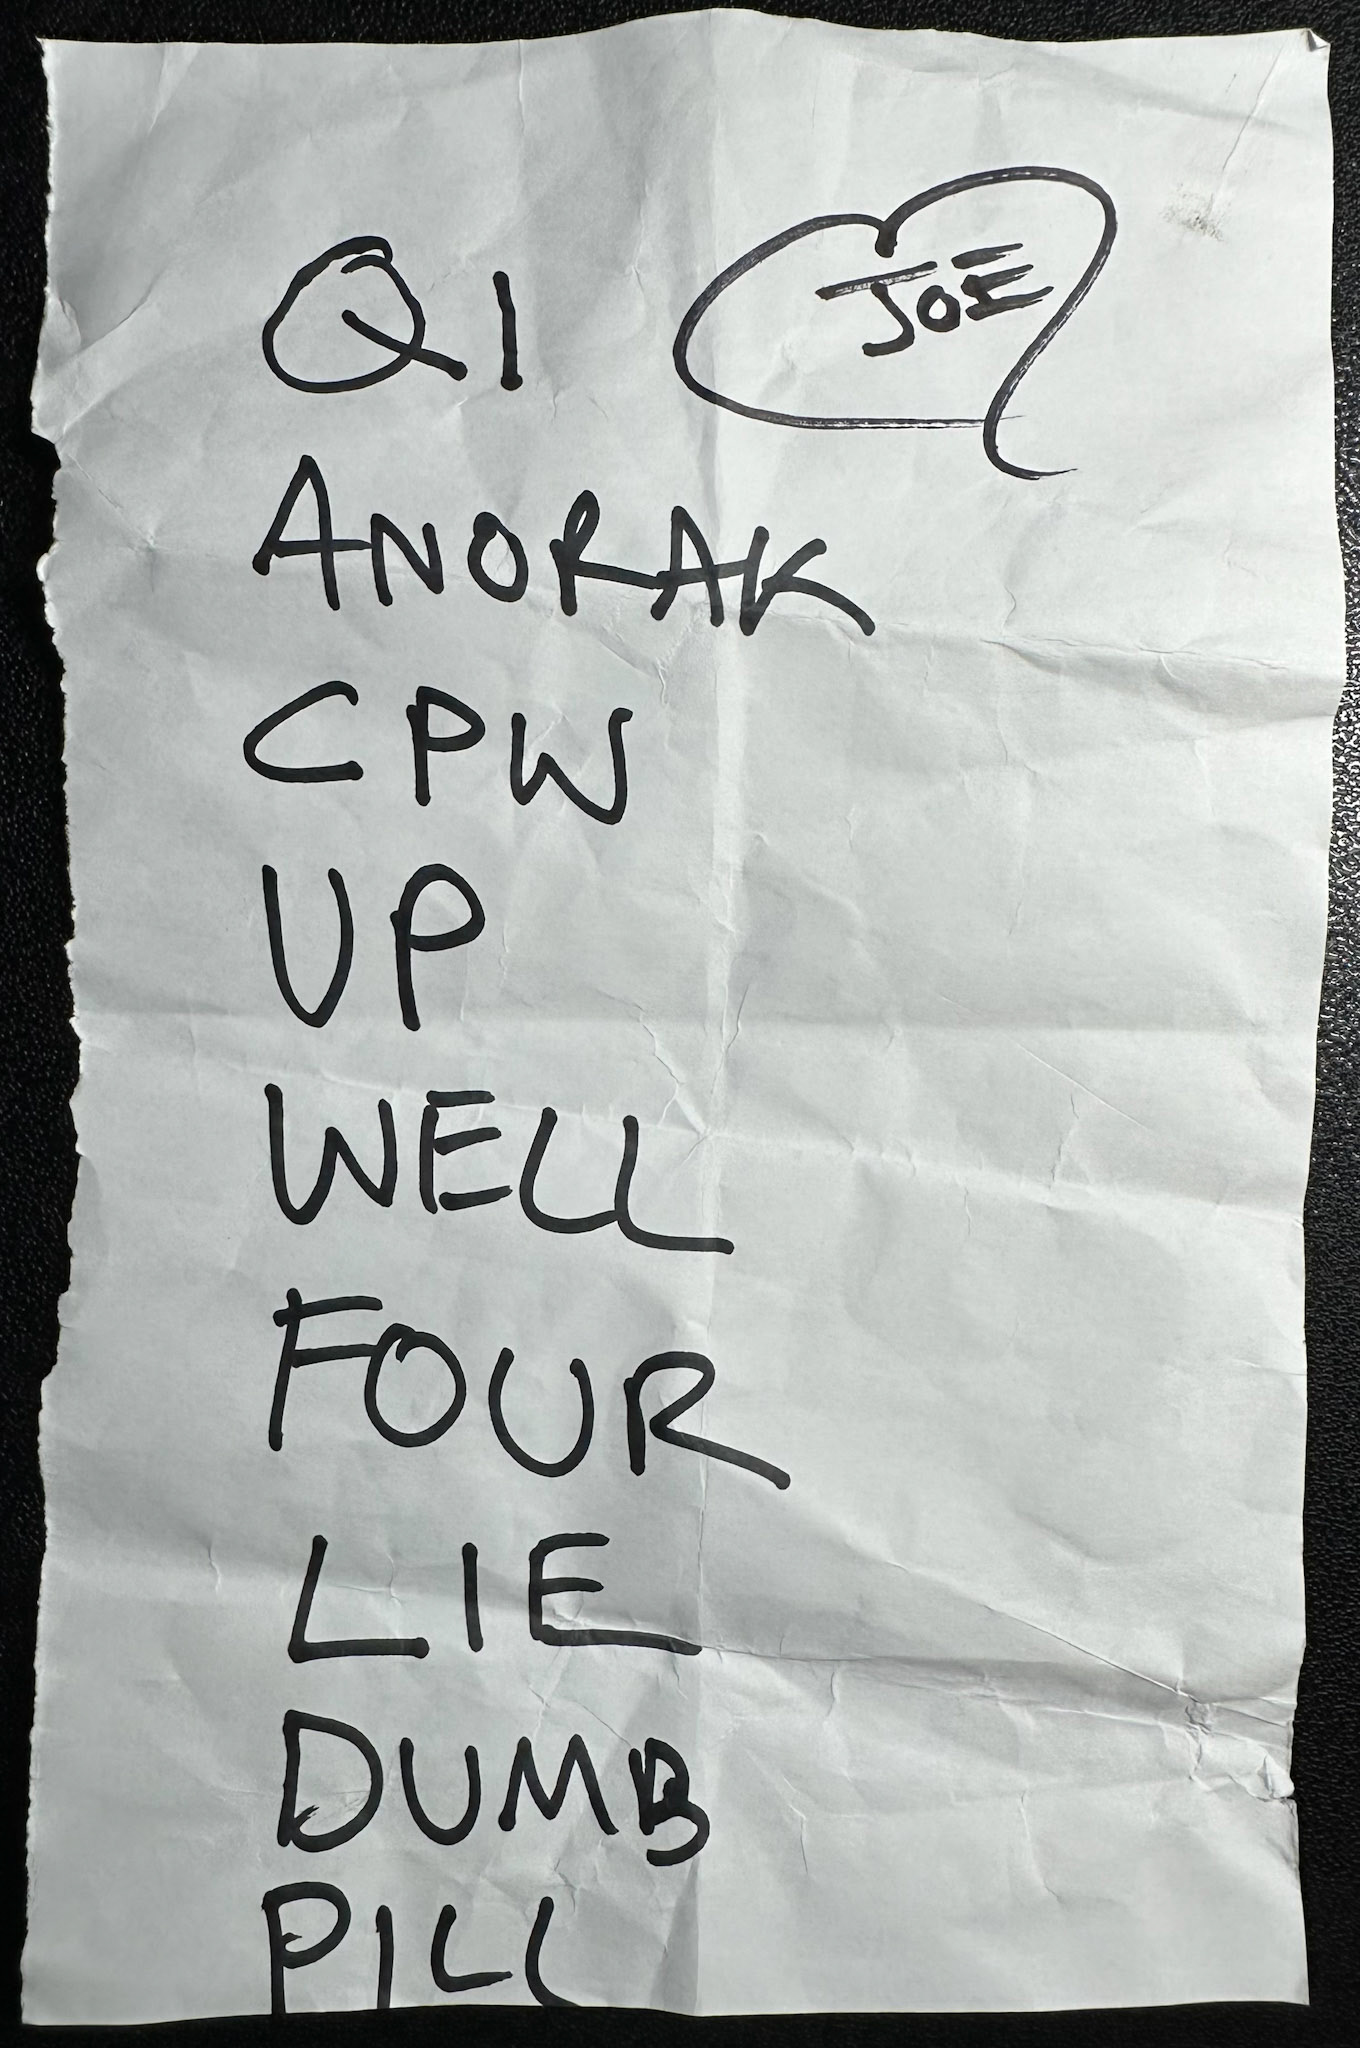 Q1 JOE
ANORAK
CPW
UP
WELL
FOUR
LIE
DUMB
PILL